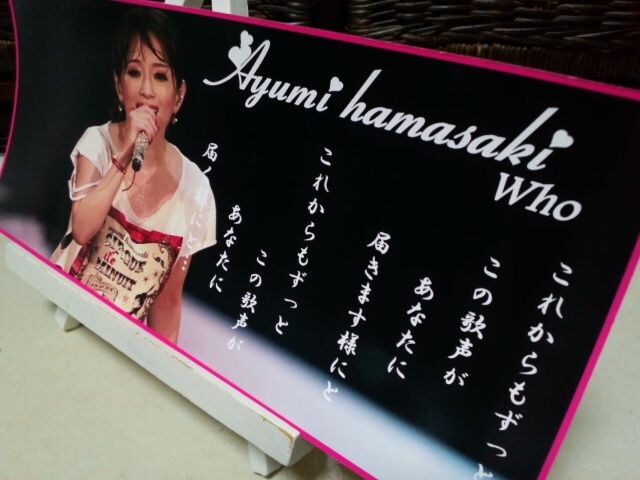 Ayumi hamasaki
Who
これからもずっと
この歌声が
あなたに
届きます様にと
これからもずっと
この歌声が
あなたに
届く様にと…
CIRQUE
de
MINUIT